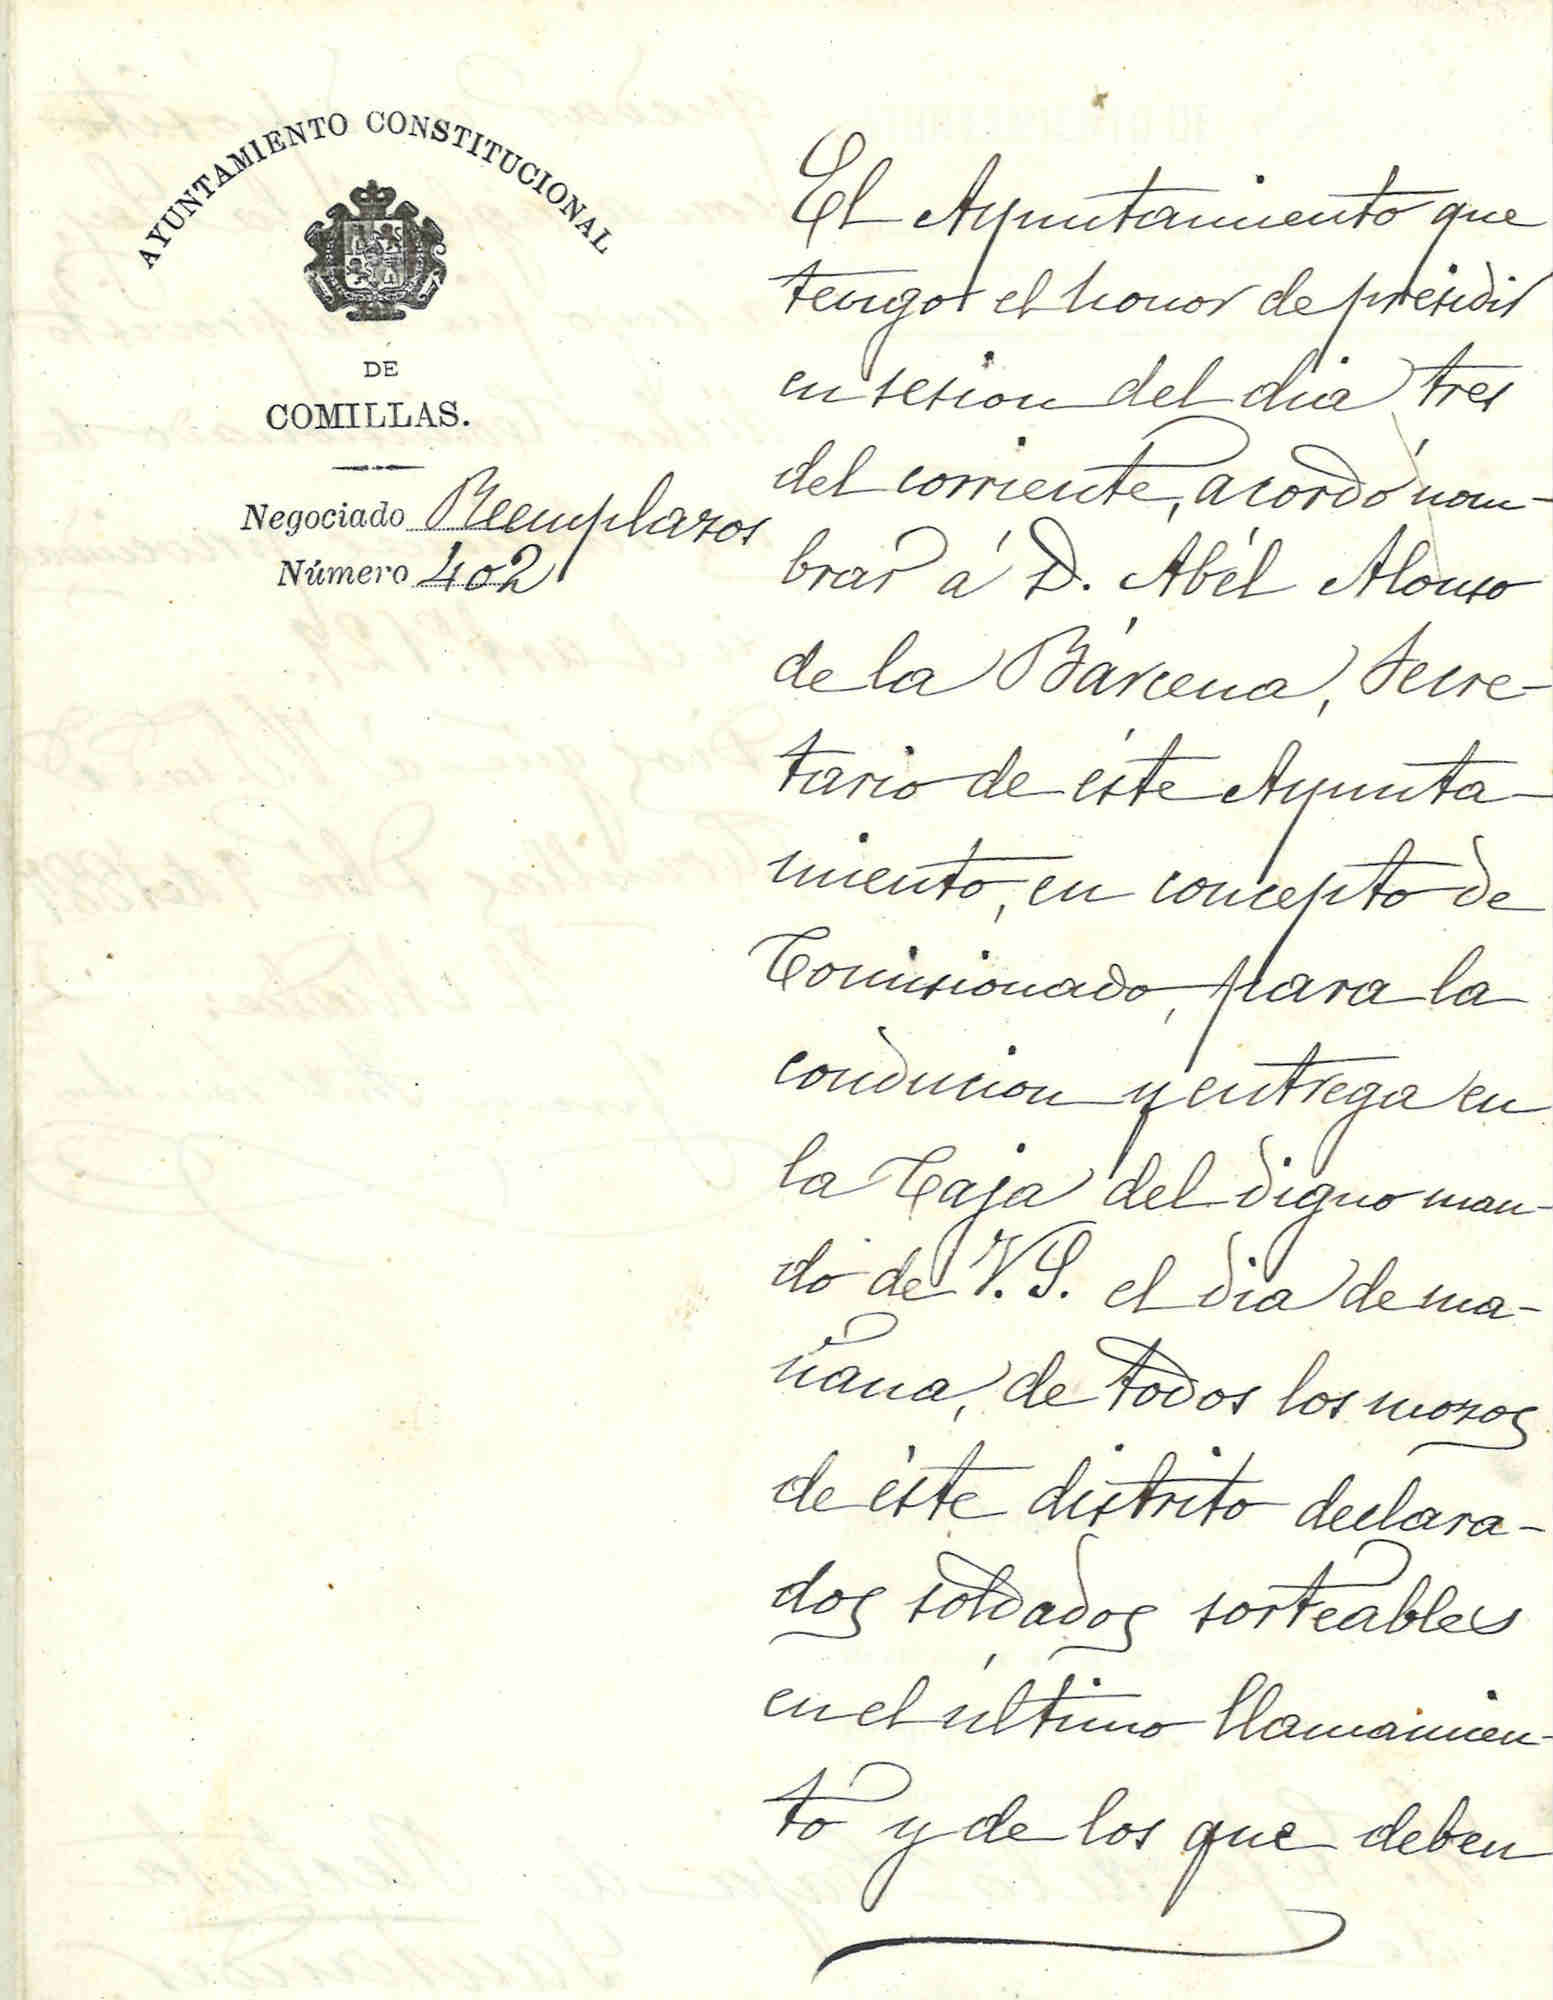 AYUNTAMIENTO CONSTITUCIONAL
DE
COMILLAS.
Negociado Reemplazos
Número 402
El Ayuntamiento que
tengo el honor de presidir
en sesion del dia tres
del corriente, acordó nom-
brar á D. Abél Alonso
de la Bárcena, Secre-
tario de éste Ayunta-
miento, en concepto de
Comisionado, para la
conducion y entrega en
la Caja del digno man-
do de V. S. el dia de ma-
ñana, de todos los mozos
de éste distrito declara-
dos soldados sorteables
en el último llamamien-
to y de los que deben